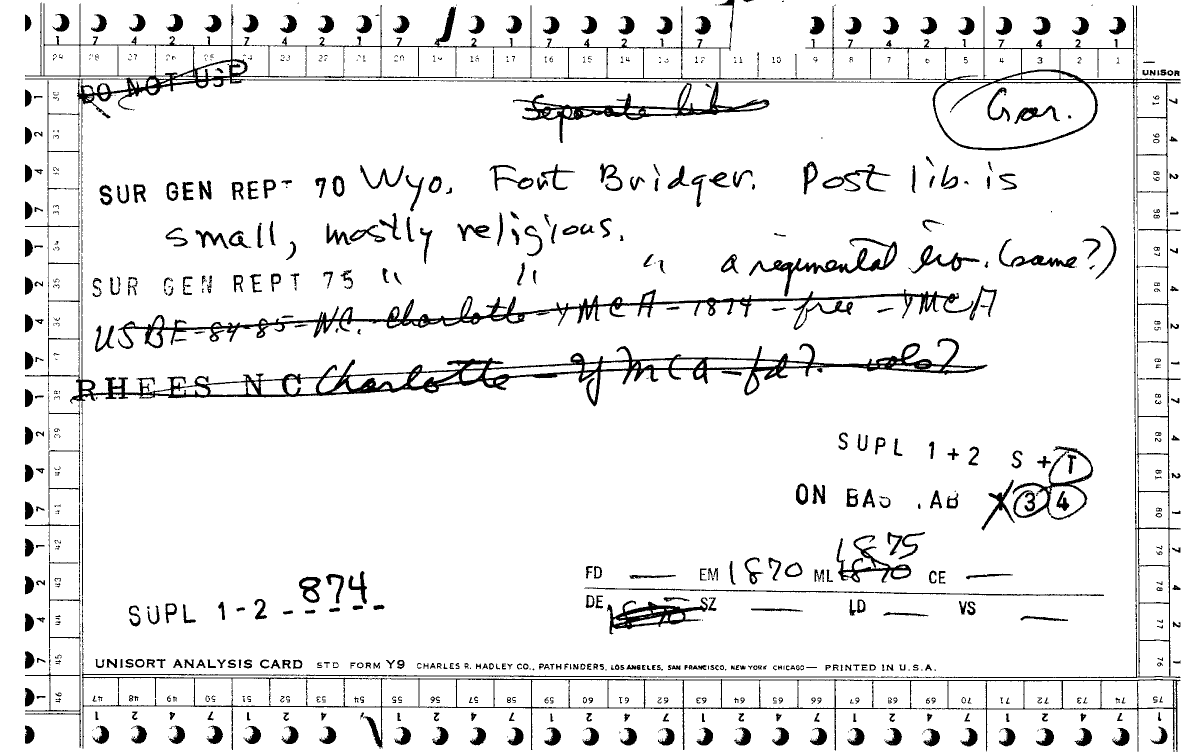 7 4 2 1 7 4 2 1 7 4 2 1 7 4 2 1 7 1 7 4 2 1 7 4 2 1
29 28 27 26 25 24 23 22 21 20 19 18 17 16 15 14 13 12 11 10 9 8 7 6 5 4 3 2 1
UNISOR
DO NOT USE
Separate lib
Gar.
SUR GEN REPT 70 Wyo. Fort Bridger. Post lib. is
small, mostly religious.
SUR GEN REPT 75 " " " a regimental lib. (same?)
USBE-84-85-N.C. Charlotte-YMCA-1874-free-YMCA
RHEES N C Charlotte - YMCA-fd?. vols?
SUPL 1+2 S + T
ON BAS. AB 3 4
1875
FD — EM 1870 ML 1870 CE —
DE 1870 SZ — LD — VS —
SUPL 1-2 - 874 -
UNISORT ANALYSIS CARD STD FORM Y9 CHARLES R. HADLEY CO., PATHFINDERS, LOS ANGELES, SAN FRANCISCO, NEW YORK CHICAGO — PRINTED IN U.S.A.
47 48 49 50 51 52 53 54 55 56 57 58 59 60 61 62 63 64 65 66 67 68 69 70 71 72 73 74 75
1 2 4 7 1 2 4 7 1 2 4 7 1 2 4 7 1 2 4 7 1 2 4 7 1 2 4 7 1